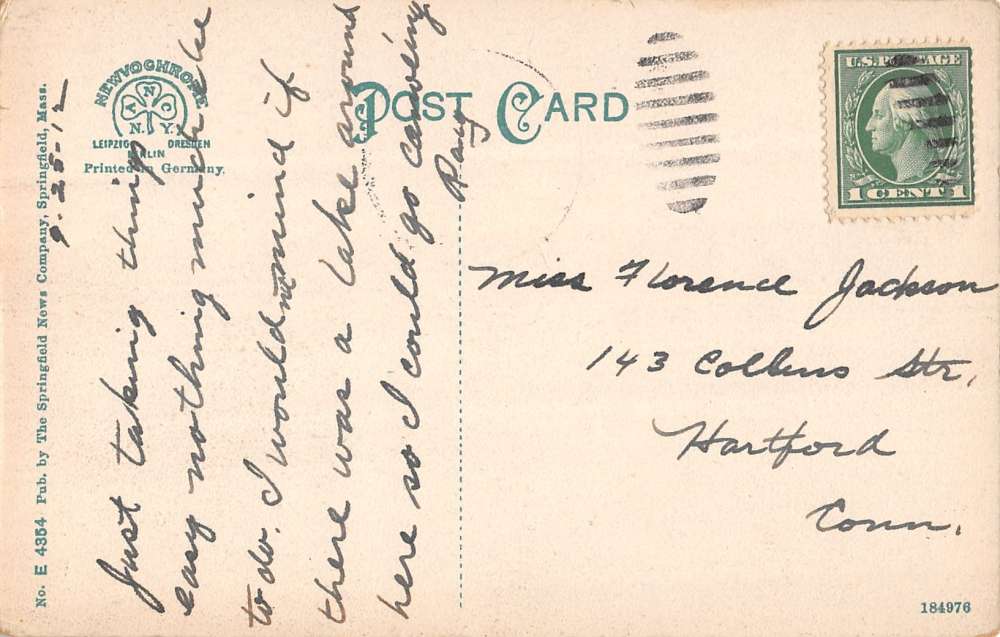 No. E 4354 Pub. by The Springfield News Company, Springfield, Mass.
9-25-12
NEWVOCHROME
A N C
N.Y.
LEIPZIG DRESDEN
BERLIN
Printed in Germany.
POST CARD
U.S. POSTAGE
1 CENT 1
Just taking things
easy nothing much else
to do. I would not mind if
there was a lake around
here so I could go canoeing
Miss Florence Jackson
143 Collins Str.
Hartford
Conn.
184976